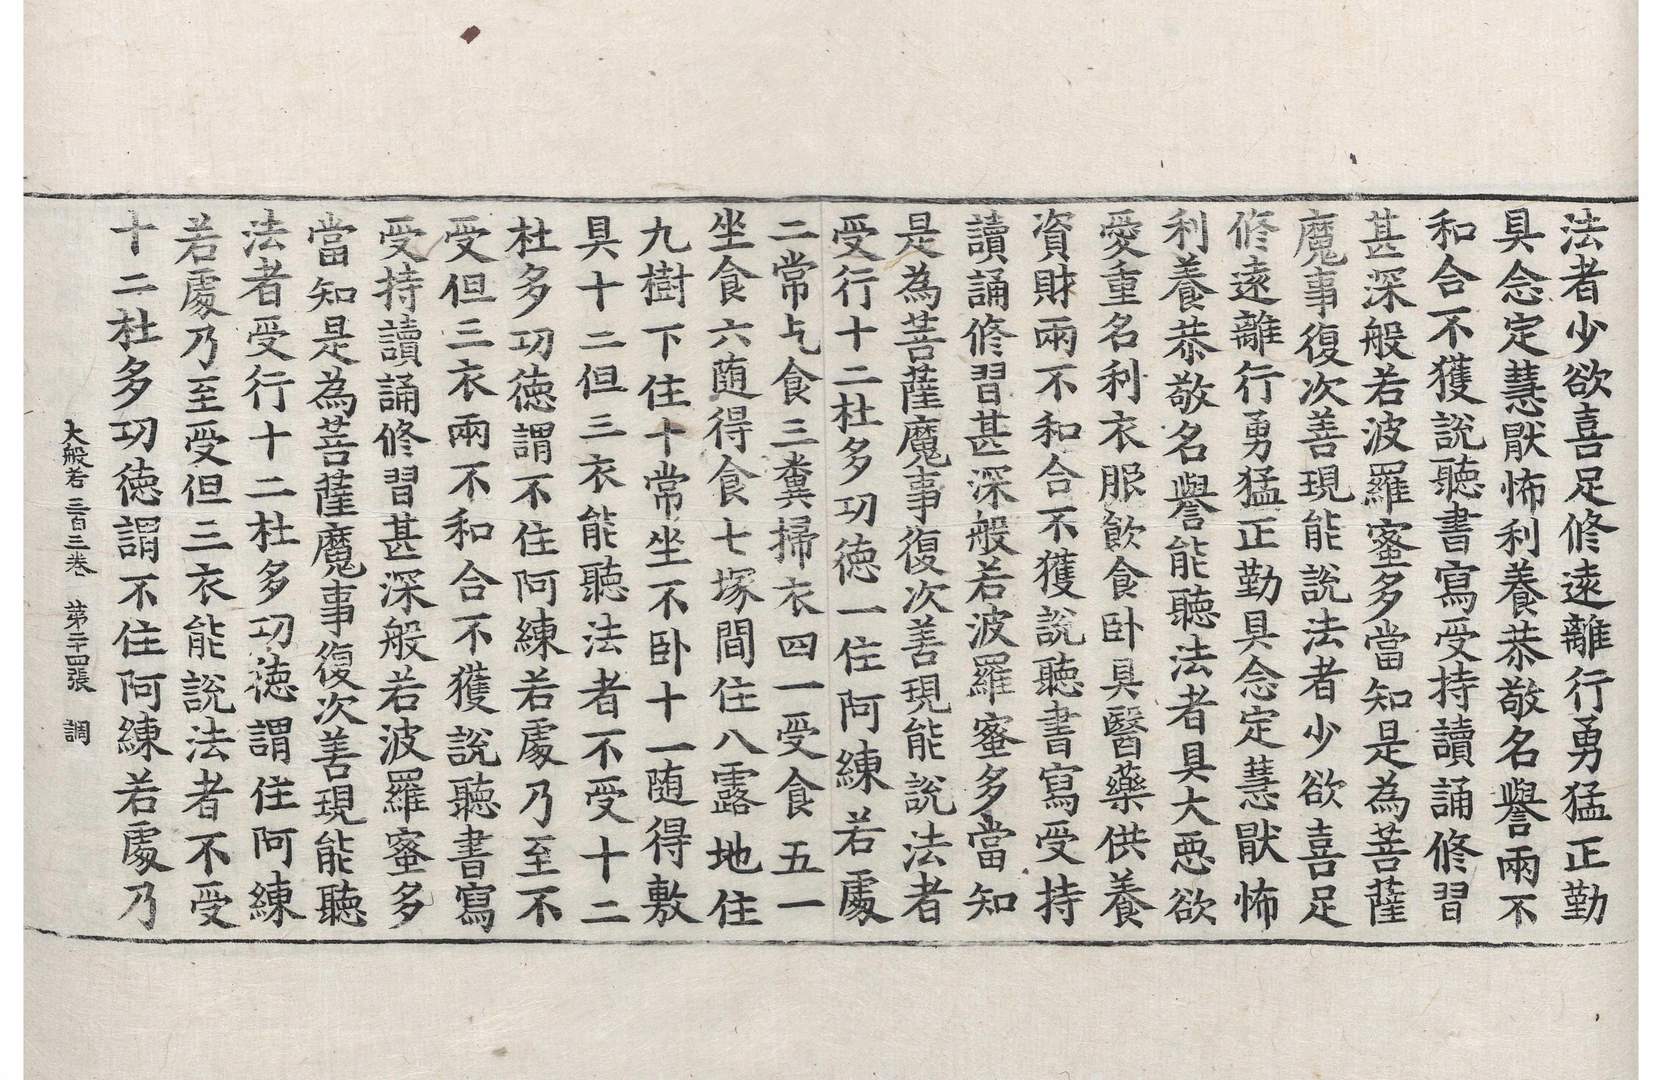 法者少欲喜足修遠離行勇猛正勤
具念定慧猒怖利養恭敬名譽兩不
和合不獲說聽書寫受持讀誦修習
甚深般若波羅蜜多當知是為菩薩
魔事復次善現能說法者少欲喜足
修遠離行勇猛正勤具念定慧猒怖
利養恭敬名譽能聽法者具大惡欲
愛重名利衣服飲食卧具醫藥供養
資財兩不和合不獲說聽書寫受持
讀誦修習甚深般若波羅蜜多當知
是為菩薩魔事復次善現能說法者
受行十二杜多功德一住阿練若處
二常乞食三糞掃衣四一受食五一
坐食六隨得食七塚間住八露地住
九樹下住十常坐不卧十一隨得敷
具十二但三衣能聽法者不受十二
杜多功德謂不住阿練若處乃至不
受但三衣兩不和合不獲說聽書寫
受持讀誦修習甚深般若波羅蜜多
當知是為菩薩魔事復次善現能聽
法者受行十二杜多功德謂住阿練
若處乃至受但三衣能說法者不受
十二杜多功德謂不住阿練若處乃
大般若三百三卷 第二十四張 調